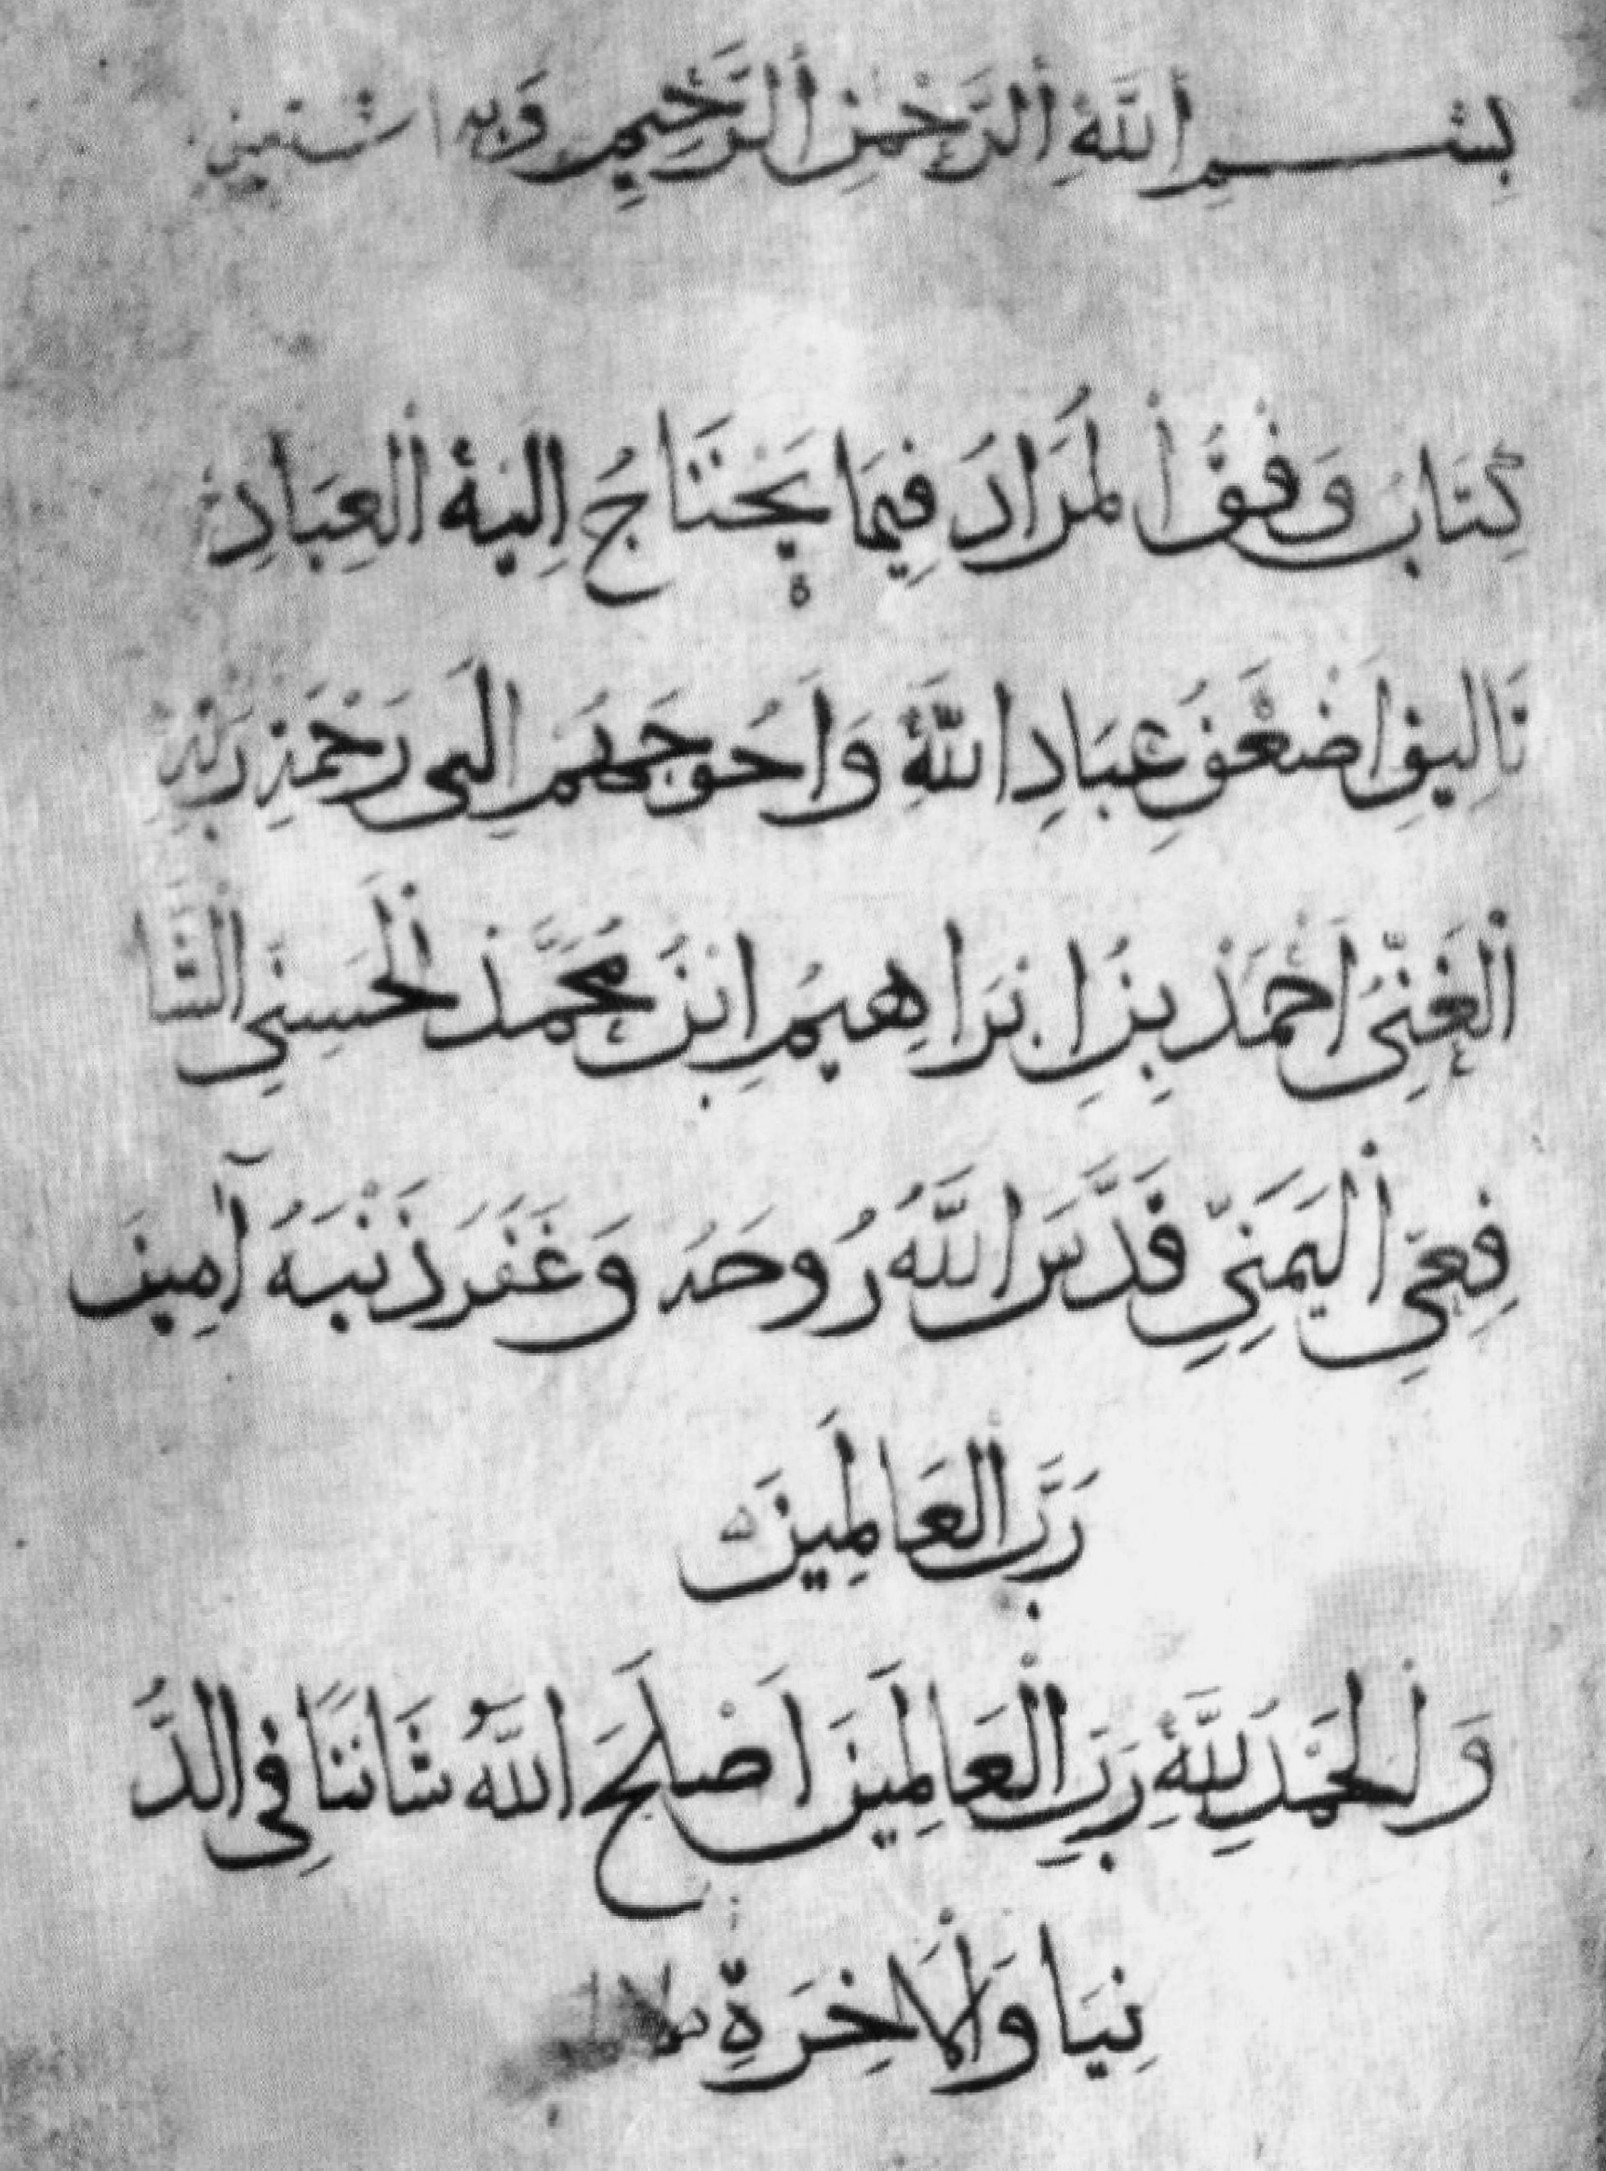 بسم الله الرحمن الرحيم وبه استعين
كِتَابُ وَفْقُ الْمُرَادُ فِيمَا يَحْتَاجُ اِلَيْهْ الْعِبَادِ
تَالِيفِ اَضْعَفُ عِبَادِ اللَّهْ وَاَحْوَجَهُمِ اِلَى رَحْمَةِ رَبِّهِ
الْغَنِّيُ اَحْمَدْ بِنِ اِبْرَاهِيمُ اِبْنُ مُحَمَّدْ الْحَسِنِي الشَّا
فِعِّي الْيَمَنِيِّ قَدَّسَ اللَّهُ رُوحَهُ وَغَفَرَ ذَنْبَهُ آمِينَ
رَبَّ الْعَالَمِينَ
وَالْحَمْدُ لِلَّهِ رَبِّ الْعَالَمِينَ اَصْلَحَ اللَّهُ شَانَنَا فِي الدُّ
نِيَا وَالْاَخِرَةِ